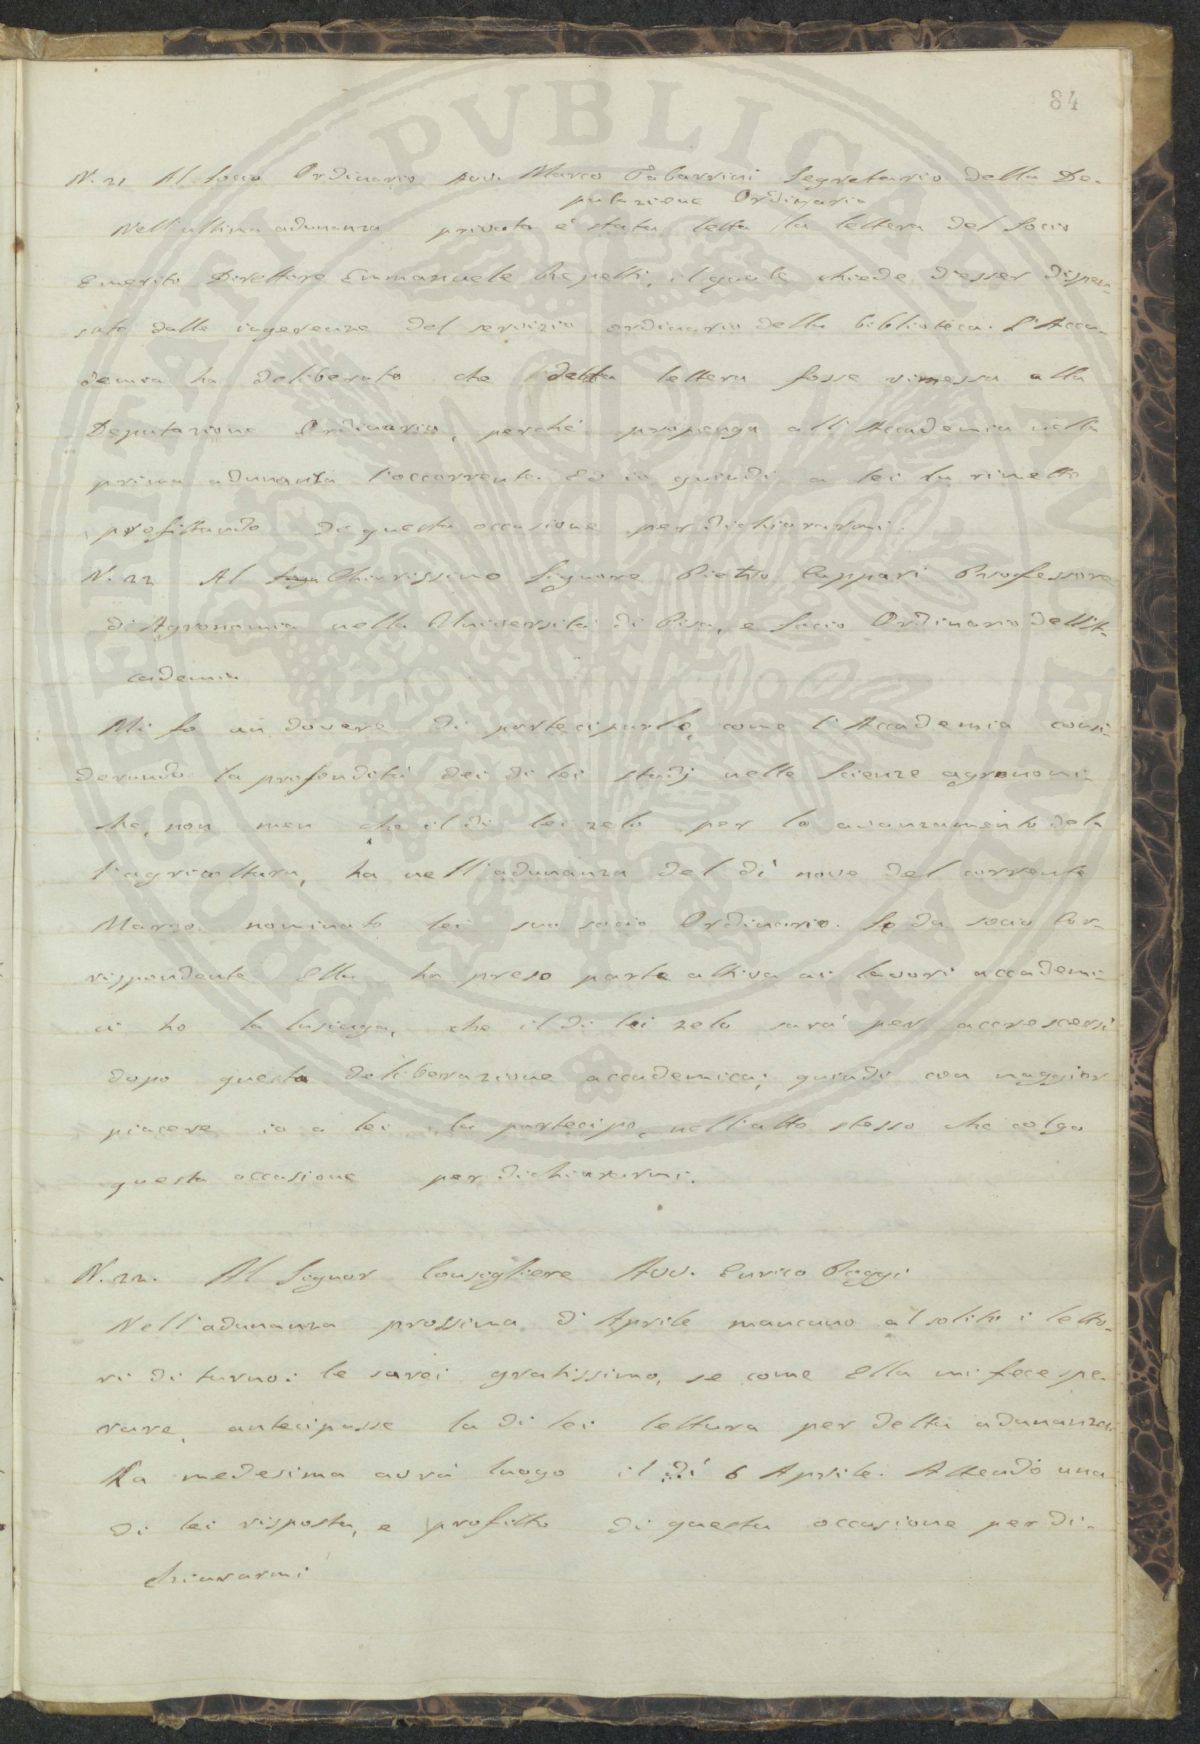 84
N. 21 Al Socio Ordinario Avv. Marco Tabarrini Segretario della De-
putazione Ordinaria
Nell'ultima adunanza privata è stata letta la lettera del Socio
Emerito Direttore Emmanuele Repetti, il quale chiede d'esser dispen-
sato dalle ingerenze del servizio ordinario della biblioteca. L'Acca-
demia ha deliberato che detta lettera fosse rimessa alla
Deputazione Ordinaria, perché proponga all'Accademia nella
prima adunanza l'occorrente. Ed io quindi a lei la rimetto
profittando di questa occasione per dichiararmi.
N. 22 Al Chiarissimo Signore Pietro Cuppari Professore
di Agronomia nella Università di Pisa, e Socio Ordinario dell'Ac-
cademia
Mi fo un dovere di parteciparle, come l'Accademia consi-
derando la profondità dei di lei studj nelle Scienze agronomi-
che, non men che il di lei zelo per lo avanzamento dela
l'agricoltura, ha nell'adunanza del dì nove del corrente
Marzo nominato lei suo socio Ordinario. Se da socio Cor-
rispondente Ella ha preso parte attiva ai lavori accademi-
ci ho la lusinga, che il di lei zelo sarà per accrescersi
dopo questa deliberazione accademica; quindi con maggior
piacere io a lei la partecipo, nell'atto stesso che colgo
questa occasione per dichiararmi.
N. 22. Al Signor Consigliere Avv. Enrico Poggi
Nell'adunanza prossima d'Aprile mancano al solito i letto-
ri di turno: le sarei gratissimo, se come Ella mi fece spe-
rare, antecipasse la di lei lettura per detta adunanza.
La medesima avrà luogo il dì 6 Aprile. Attendo una
di lei risposta, e profitto di questa occasione per di-
chiararmi
PUBLICAE
PROSPERITATI
AUGENDAE